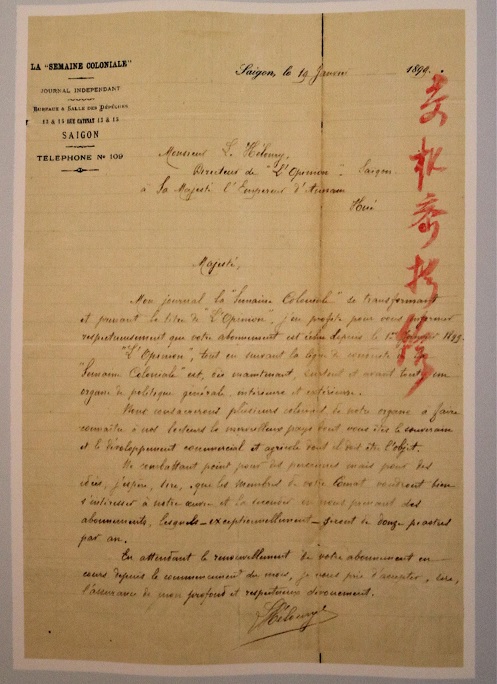 LA "SEMAINE COLONIALE"
JOURNAL INDÉPENDANT
BUREAUX & SALLE DES DÉPÊCHES
13 & 15 RUE CATINAT 13 & 15
SAIGON
TÉLÉPHONE No 109
Saigon, le 14 Janvier 1899.
Monsieur L. Héloury,
Directeur de "L'Opinion". Saigon
à Sa Majesté l'Empereur d'Annam
Hué
Majesté,
Mon journal la "Semaine Coloniale" se transformant
et prenant le titre de "L'Opinion", j'en profite pour vous informer
respectueusement que votre abonnement est échu depuis le 1er 1899.
"L'Opinion", tout en suivant la ligne de conduite de la
Semaine Coloniale" est, dès maintenant, surtout et avant tout un
organe de politique générale, intérieure et extérieure.
Nous consacrerons plusieurs colonnes de notre organe à faire
connaître à nos lecteurs le merveilleux pays dont vous êtes le souverain
et le développement commercial et agricole dont il doit être l'objet.
Ne combattant point pour des personnes mais pour des
idées, j'espère, Sire, que les membres de votre Comat voudront bien
s'intéresser à notre œuvre et la seconder en nous prenant des
abonnements, lesquels - exceptionnellement - seront de douze piastres
par an.
En attendant le renouvellement de votre abonnement en
cours depuis le commencement du mois, je vous prie d'accepter, Sire,
l'assurance de mon profond et respectueux dévouement.
Héloury